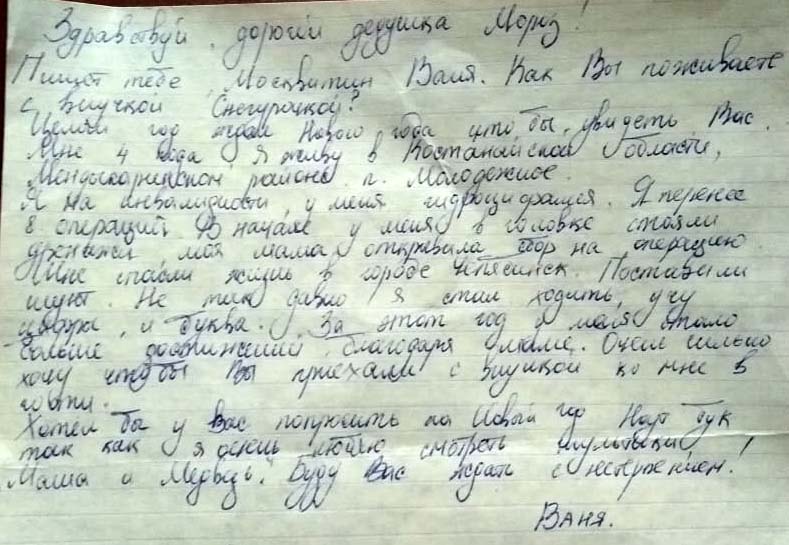 Здравствуй, дорогой дедушка Мороз!
Пишет тебе Москвитин Ваня. Как Вы поживаете
с внучкой Снегурочкой?
Целый год ждал Нового года что бы, увидеть Вас.
Мне 4 года я живу в Костанайской области,
Мендыкаринском районе п. Молодежное.
Я на инвалидности, у меня гидроцифалия. Я перенес
8 операций. В начале у меня в головке стояли
дренажи моя мама открывала сбор на операцию.
Мне спасли жизнь в городе Челябинск. Поставили
шунт. Не так давно я стал ходить, учу
цифры, и буквы. За этот год у меня стало
больше достижений, благодаря маме. Очень сильно
хочу что бы Вы приехали с внучкой ко мне в
гости.
Хотел бы у Вас попросить на Новый год Ноут бук
так как я очень люблю смотреть мультики
Маша и Медведь! Буду Вас ждать с нетерпением!
Ваня.